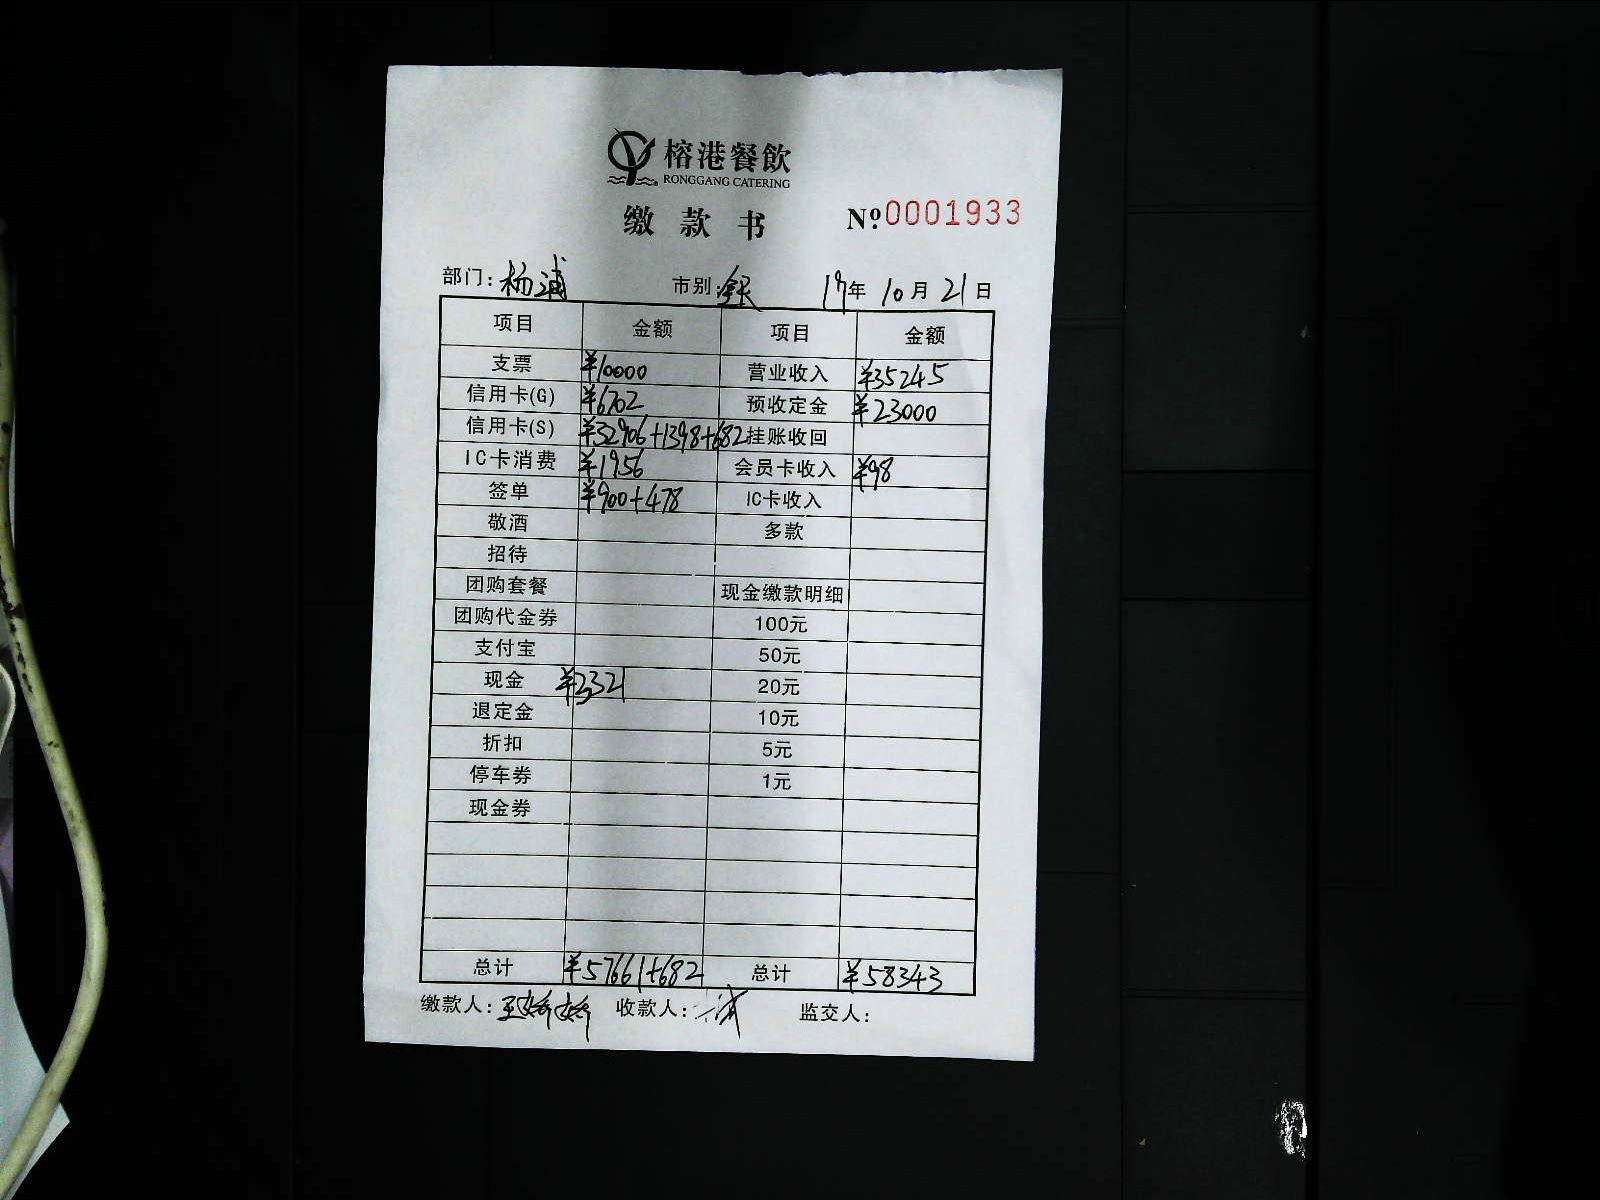 榕港餐飲
RONGGANG CATERING
缴款书
№0001933
部门：杨浦 市别：全天 17年 10月 21日
项目 金额 项目 金额
支票 ¥10000 营业收入 ¥35245
信用卡(G) ¥6702 预收定金 ¥23000
信用卡(S) ¥32906+1398+682 挂账收回
IC卡消费 ¥1956 会员卡收入 ¥98
签单 ¥900+478 IC卡收入
敬酒 多款
招待
团购套餐 现金缴款明细
团购代金券 100元
支付宝 50元
现金 ¥3321 20元
退定金 10元
折扣 5元
停车券 1元
现金券
总计 ¥57661+682 总计 ¥58343
缴款人：王娇娇 收款人： 监交人：